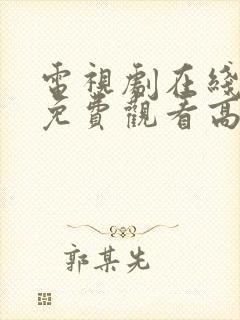 電視劇在綫
免費觀看高
郭某先